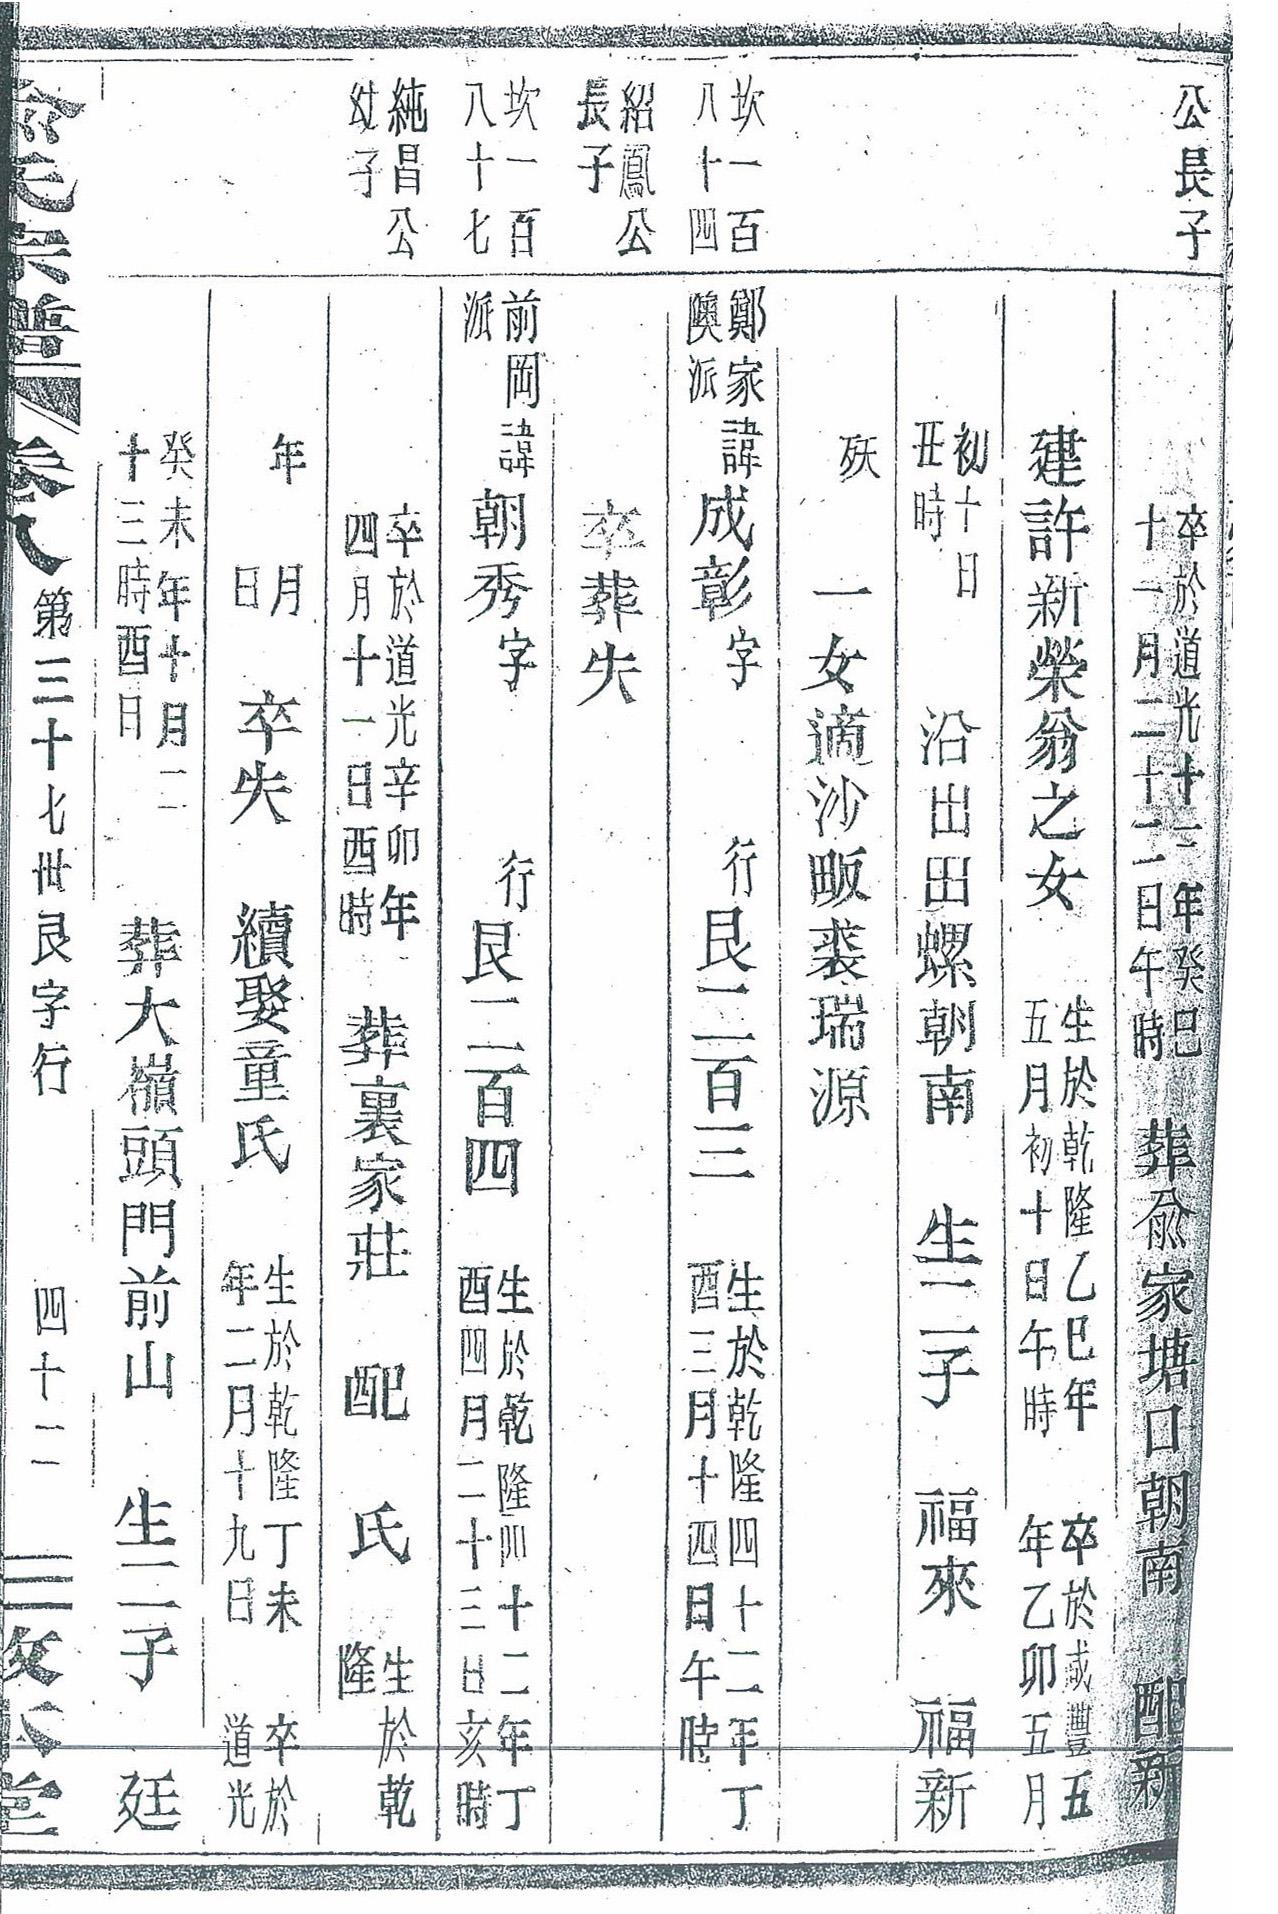 公長子
卒於道光十三年癸巳
十一月二十二日午時
葬兪家塘口朝南 配新
建許新榮翁之女
生於乾隆乙巳年
五月初十日午時
卒於咸豐五
年乙卯五月
初十日
丑時
沿出出螺朝南 生二子 福來 福新
殀
一女適沙畈裘瑞源
坎一百
八十四
鄭家
隩派
諱成彰字 行艮二百三
生於乾隆四十二年丁
酉三月十四日午時
紹鳳公
長子
卒葬失
坎一百
八十七
前岡
派
諱朝秀字 行艮二百四
生於乾隆四十二年丁
酉四月二十三日亥時
純昌公
幼子
卒於道光辛卯年
四月十一日酉時
葬裏家莊 配 氏
生於乾
隆
年 月
日
卒失 續娶童氏
生於乾隆丁未
年二月十九日
卒於
道光
癸未年十月二
十三時酉日
葬大嶺頭門前山 生二子 廷
兪氏宗譜 卷八 第三十七卅艮字行 四十二 敦本堂